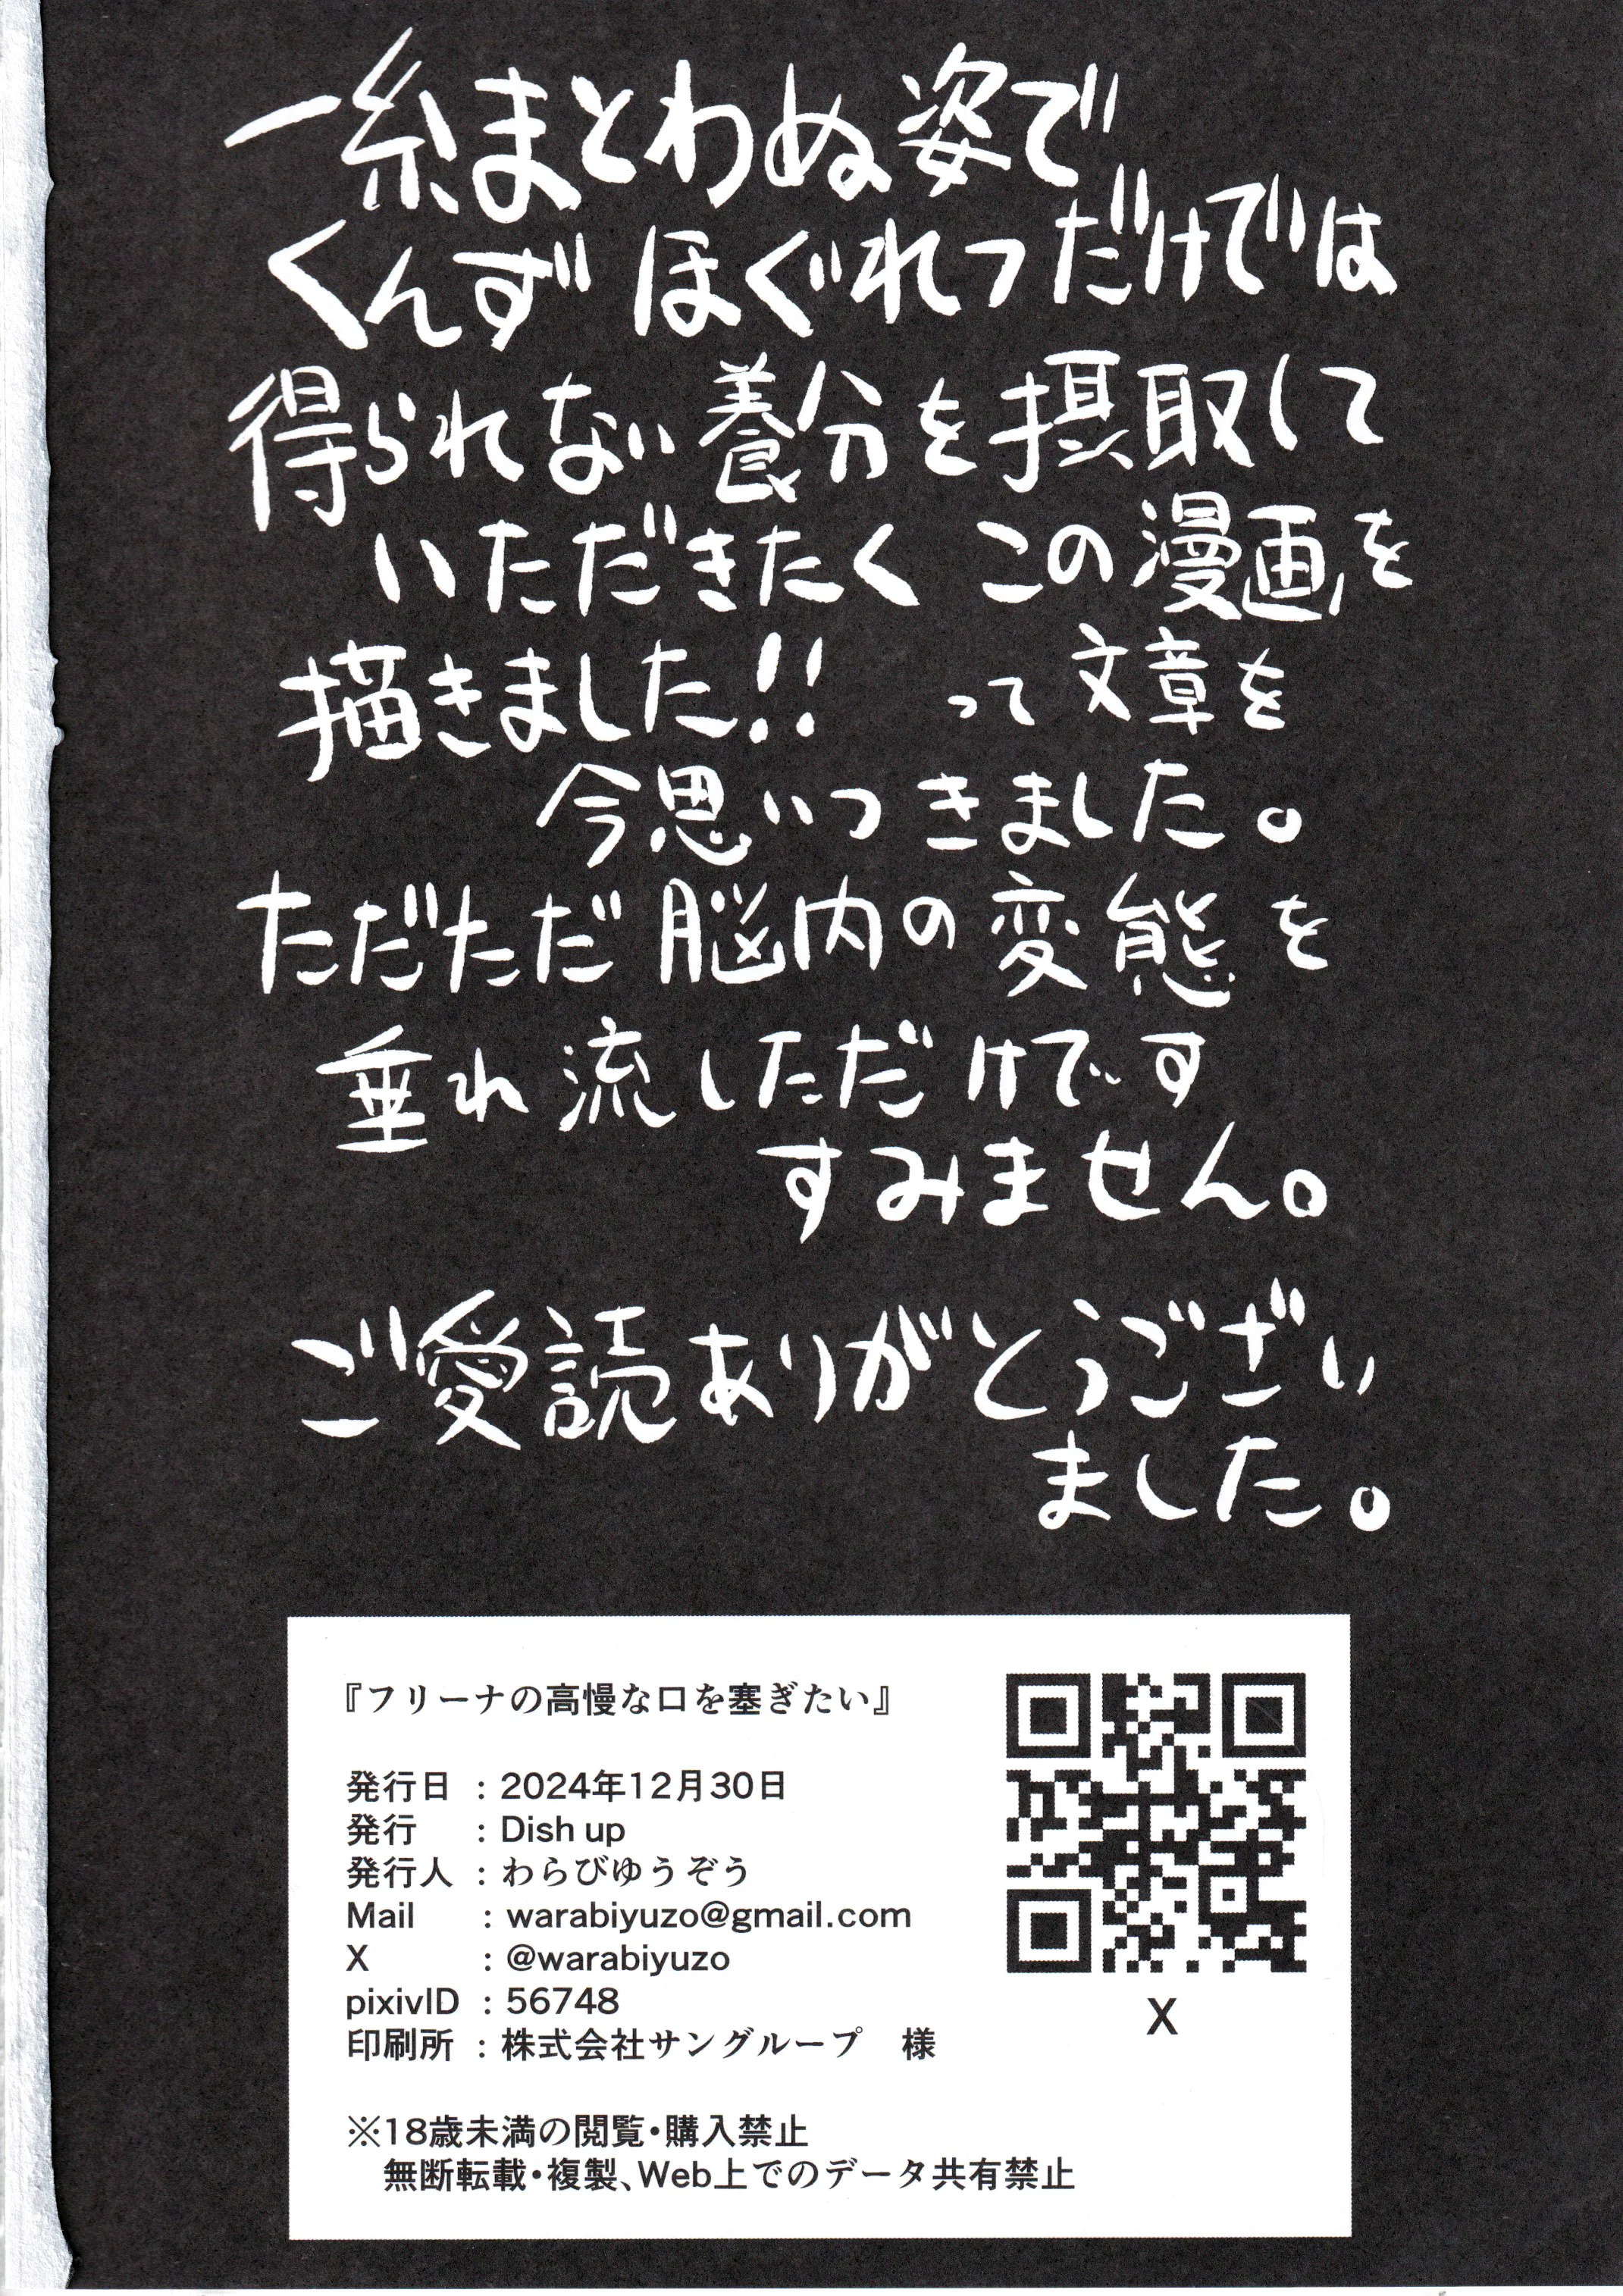 一糸まとわぬ姿で
くんずほぐれつだけでは
得られない養分を摂取して
いただきたく この漫画を
描きました!! って文章を
今思いつきました。
ただただ脳内の変態を
垂れ流しただけです
すみません。
ご愛読ありがとうござい
ました。
『フリーナの高慢な口を塞ぎたい』
発行日 : 2024年12月30日
発行 : Dish up
発行人 : わらびゆうぞう
Mail : warabiyuzo@gmail.com
X : @warabiyuzo
pixivID : 56748
印刷所 : 株式会社サングループ 様
X
※18歳未満の閲覧・購入禁止
無断転載・複製、Web上でのデータ共有禁止